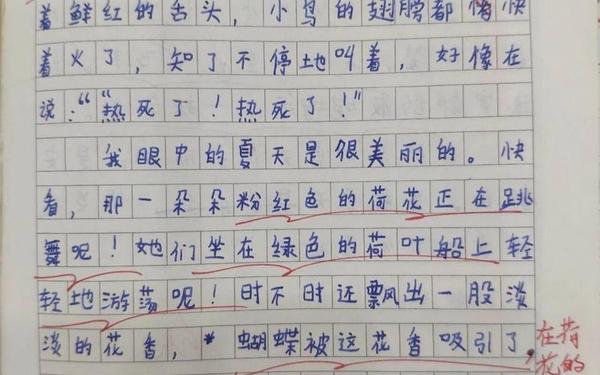 着鲜红的舌头，小鸟的翅膀都快
着火了，知了不停地叫着，好像在
说：“热死了！热死了！”
我眼中的夏天是很美丽的。快
看，那一朵朵粉红色的荷花正在跳
舞呢！她们坐在绿色的荷叶船上轻
轻地游荡呢！时不时还飘出一股淡
淡的花香，蝴蝶被这花香吸引了
在荷
花的